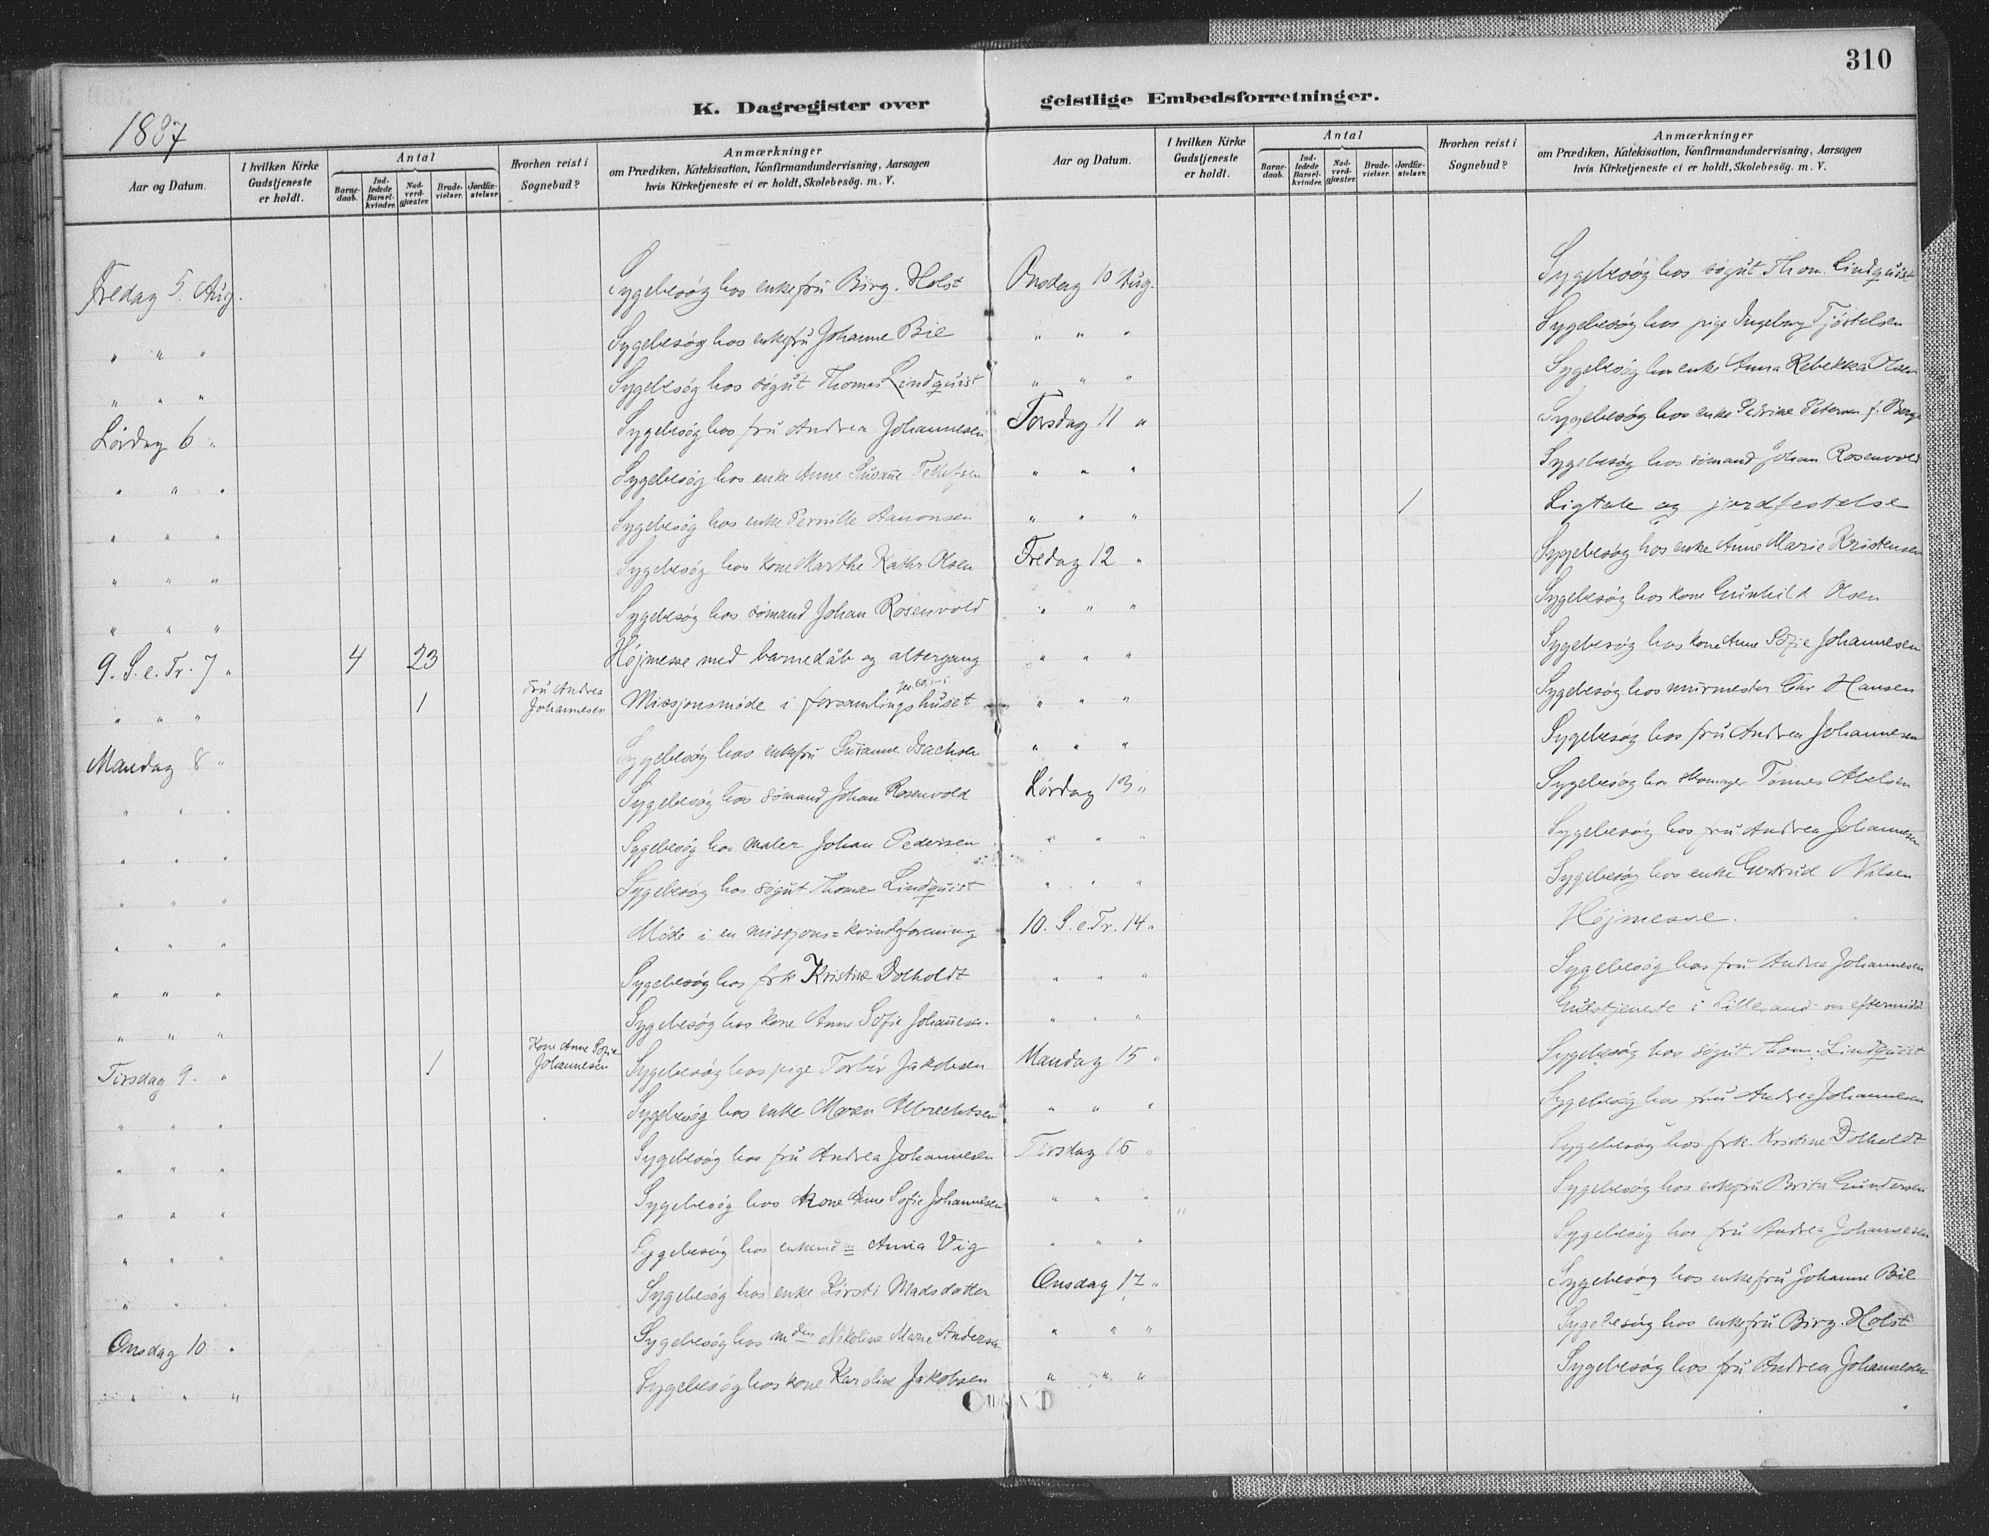 310
K. Dagregister over geistlige Embedsforretninger.
1887
Aar og Datum.
I hvilken Kirke Gudstjeneste er holdt.
Antal
Barne-daab.
Ind-ledede Barsel-kvinder.
Nad-verd-gjæster.
Brude-vielser.
Jordfæ-stelser.
Hvorhen reist i Sognebud?
Anmærkninger
om Prædiken, Katekisation, Konfirmandundervisning, Aarsagen
hvis Kirketjeneste ei er holdt, Skolebesög. m. V.
Fredag 5. Aug. Sygebesøg hos enkefru Birg. Holst
" " " Sygebesøg hos enkefru Johanne Bie
" " " Sygebesøg hos søgut Thomas Lindquist
Lördag 6 " Sygebesøg hos fru Andrea Johannesen
" " " Sygebesøg hos enke Anne Susanne Tellefsen
" " " Sygebesøg hos enke Pernille Aanonsen
" " " Sygebesøg hos kone Marthe Kathr Olsen
" " " Sygebesøg hos sømand Johan Rosenvold
9. S. e. Tr. 7 " 4 23 Højmesse med barnedåb og altergang
" " " 1 Fru Andrea Johannesen Missjonsmöde i forsamlingshuset Jes. 60, 1-5
Mandag 8 " Sygebesøg hos enkefru Susanne Isachsen
" " " Sygebesøg hos sømand Johan Rosenvold
" " " Sygebesøg hos maler Johan Pedersen
" " " Sygebesøg hos søgut Thomas Lindquist
" " " Möde i en missjons=kvindeforening
" " " Sygebesøg hos frk Kristine Dolholdt
" " " Sygebesøg hos kone Anne Sofie Johannesen.
Tirsdag 9. " 1 Kone Anne Sofie Johannesen Sygebesøg hos pige Torbör Jakobsen
" " " Sygebesøg hos enke Maren Albrechtsen
" " " Sygebesøg hos fru Andrea Johannesen
" " " Sygebesøg hos kone Anne Sofie Johannesen
" " " Sygebesøg hos Anna Vig
" " " Sygebesøg hos enke Kirsti Madsdatter
Onsdag 10 " Sygebesøg hos Nikoline Marie Andersen
" " " Sygebesøg hos kone Karoline Jakobsen
Aar og Datum.
I hvilken Kirke Gudstjeneste er holdt.
Antal
Barne-daab.
Ind-ledede Barsel-kvinder.
Nad-verd-gjæster.
Brude-vielser.
Jordfæ-stelser.
Hvorhen reist i Sognebud?
Anmærkninger
om Prædiken, Katekisation, Konfirmandundervisning, Aarsagen
hvis Kirketjeneste ei er holdt, Skolebesög. m. V.
Onsdag 10 Aug. Sygebesøg hos søgut Thom. Lindquist
" " " Sygebesøg hos pige Ingeborg Tjöstelsen
" " " Sygebesøg hos enke Anna Rebekka Olsen
Torsdag 11 " Sygebesøg hos enke Pedrine Petersen f. Berge
" " " Sygebesøg hos sømand Johan Rosenvold
" " " 1 Ligtale og jordfestelse
Fredag 12 " Sygebesøg hos enke Anne Marie Kristensen
" " " Sygebesøg hos kone Gunhild Olsen
" " " Sygebesøg hos kone Anne Sofie Johannesen
" " " Sygebesøg hos murmester Chr Hansen
" " " Sygebesøg hos fru Andrea Johannesen
Lørdag 13 " Sygebesøg hos skomager Tønnes Abelsen
" " Sygebesøg hos fru Andrea Johannesen
" " " Sygebesøg hos enke Gertrud Nilsen
10. S. e. Tr. 14 " Højmesse.
" " " Sygebesøg hos fru Andrea Johannesen
" " " Gudstjeneste i Lillesand om eftermidd
Mandag 15 " Sygebesøg hos søgut Thom. Lindquist
" " " Sygebesøg hos fru Andrea Johannesen
Tirsdag 16 " Sygebesøg hos frk. Kristine Dolholdt
" " " " Sygebesøg hos enkefru Brita Gundersen
" " " Sygebesøg hos fru Andrea Johannesen
Onsdag 17 " Sygebesøg hos enkefru Johanne Bie
" " " Sygebesøg hos enkefru Birg. Holst
" " " Sygebesøg hos fru Andrea Johannesen